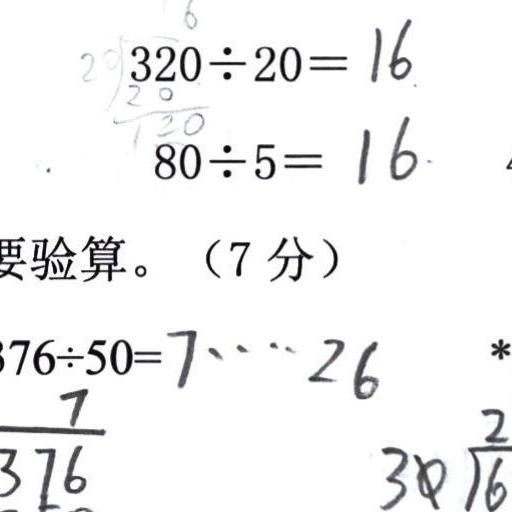 6
320÷20=16
20
20
120
80÷5=16
要验算。（7分）
376÷50=7····26
*
7
2
376
30 16